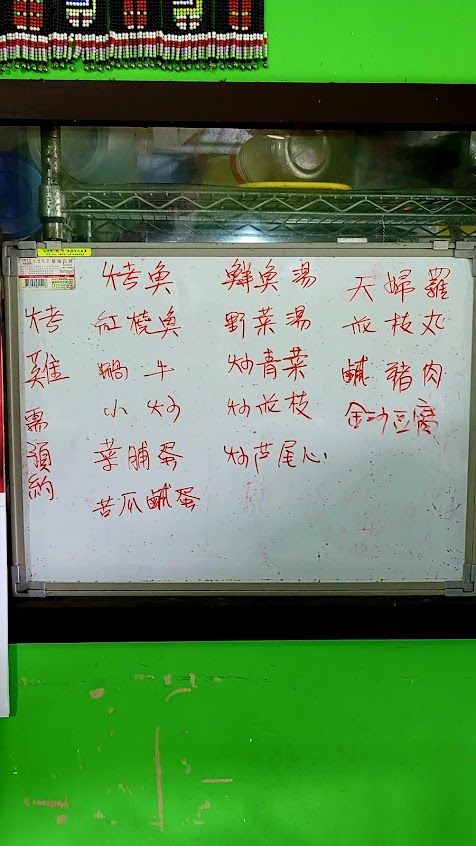 烤雞需預約
烤魚
紅燒魚
蝸牛
小炒
菜脯蛋
苦瓜鹹蛋
鮮魚湯
野菜湯
炒青菜
炒花枝
炒芦尾心
天婦羅
花枝丸
鹹豬肉
金沙豆腐